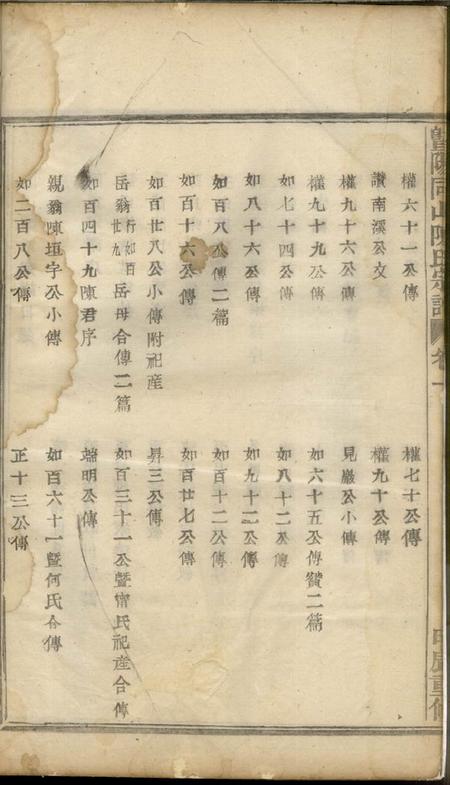 暨陽同山陳氏宗譜 卷一
權六十一公傳
權七十公傳
讃南溪公文
權九十公傳
權九十六公傳
見巖公小傳
權九十九公傳
如六十五公傳贊二篇
如七十四公傳
如八十二公傳
如八十六公傳
如九十二公傳
如百八公傳二篇
如百十二公傳
如百十六公傳
如百廿七公傳
如百廿八公小傳附祀産
昇三公傳
岳翁行如百廿九岳母合傳二篇
如百三十一公暨甯氏祀産合傳
如百四十九陳君序
端明公傳
親翁陳垣字公小傳
如百六十一暨何氏合傳
如二百八公傳
正十三公傳